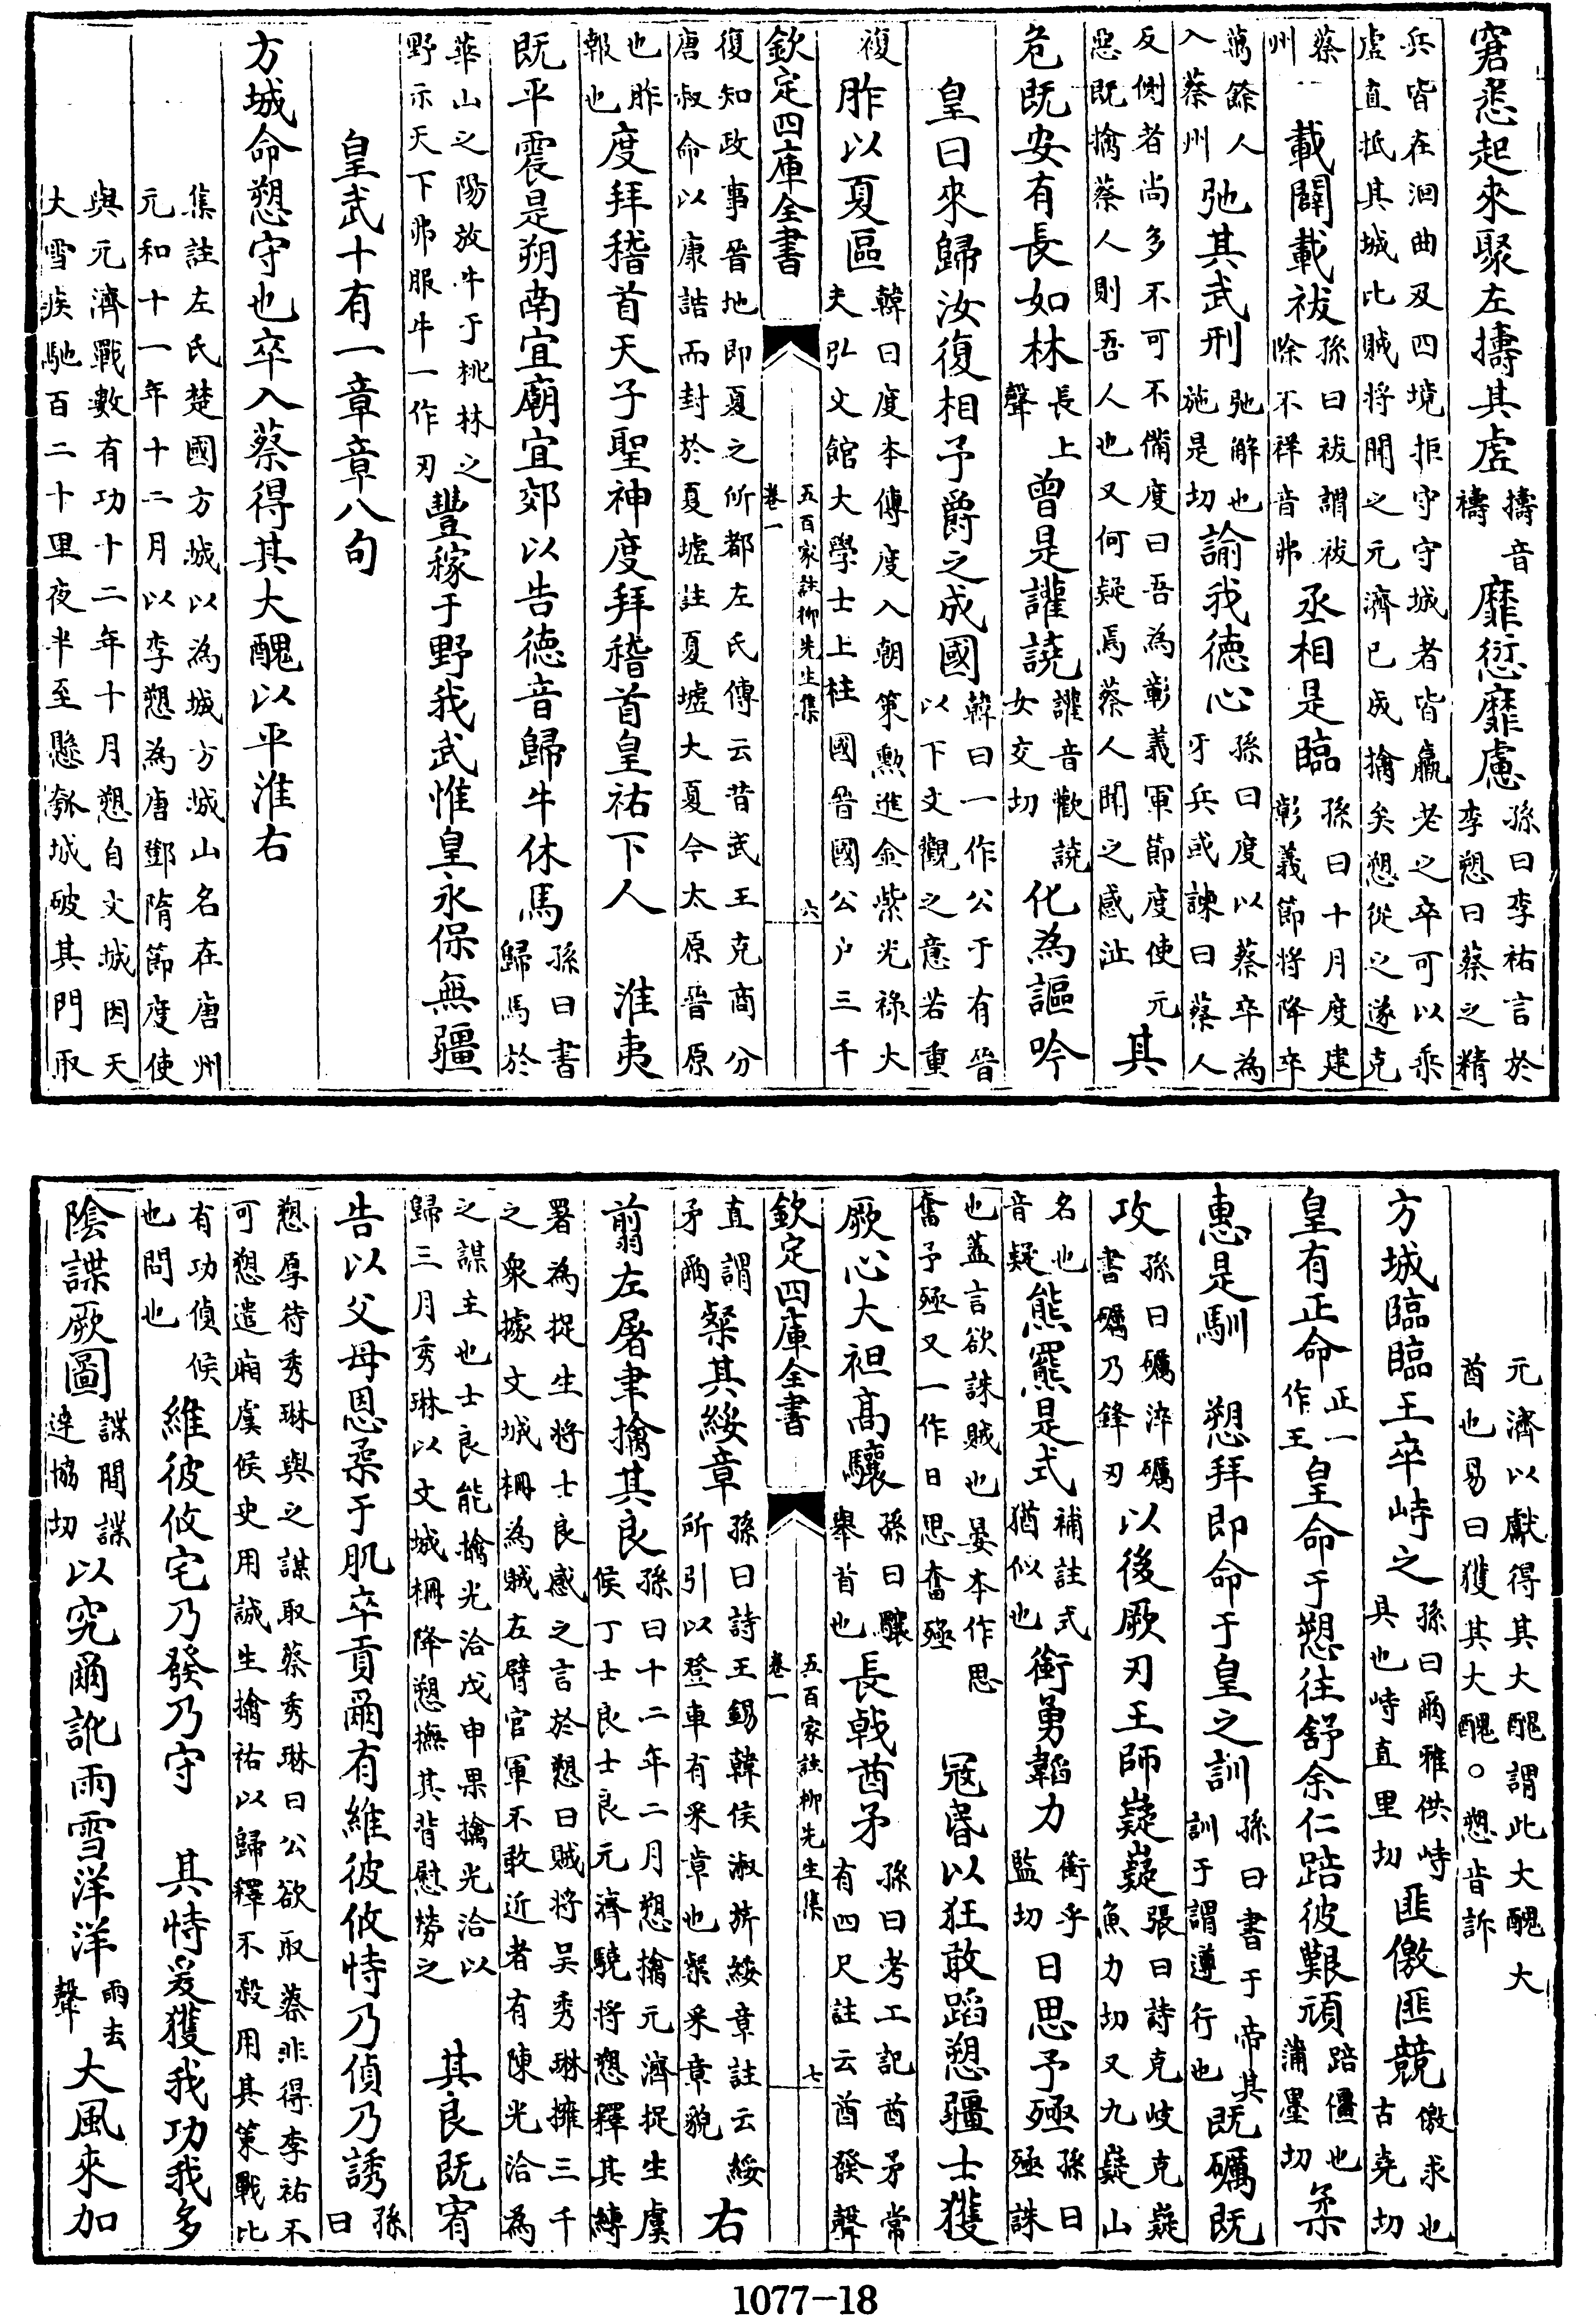 窘悉起來聚左擣其虛擣音禱靡愆靡慮孫曰李祐言於李愬曰蔡之精
兵皆在洄曲及四境拒守守城者皆羸老之卒可以乘虛直抵其城比賊將聞之元濟已成擒矣愬從之遂克
蔡州載闢載祓孫曰祓謂祓除不祥音弗丞相是臨孫曰十月度建彰義節將降卒
萬餘人入蔡州弛其武刑弛解也施是切諭我德心孫曰度以蔡卒為牙兵或諫曰蔡人
反側者尚多不可不備度曰吾為彰義軍節度使元惡既擒蔡人則吾人也又何疑焉蔡人聞之感泣其
危既安有長如林長上聲曾是讙譊讙音歡譊女交切化為謳吟
皇曰來歸汝復相予爵之成國韓曰一作公于有晉以下文觀之意若重
複胙以夏區韓曰度本傳度入朝策勲進金紫光祿大夫弘文館大學士上柱國晉國公户三千
欽定四庫全書 五百家註柳先生集卷一 六
復知政事晉地即夏之所都左氏傳云昔武王克商分唐叔命以康誥而封於夏墟註夏墟大夏今太原晉原
也胙報也度拜稽首天子聖神度拜稽首皇祐下人 淮夷
既平震是朔南宜廟宜郊以告德音歸牛休馬孫曰書歸馬於
華山之陽放牛于桃林之野示天下弗服牛一作刃豐稼于野我武惟皇永保無疆
皇武十有一章章八句
方城命愬守也卒入蔡得其大醜以平淮右
集註左氏楚國方城以為城方城山名在唐州元和十一年十二月以李愬為唐鄧隋節度使
與元濟戰數有功十二年十月愬自文城因天大雪疾馳百二十里夜半至懸瓠城破其門取
元濟以獻得其大醜謂此大醜大酋也易曰獲其大醜○愬音訴
方城臨臨王卒峙之孫曰爾雅供峙具也峙直里切匪徼匪競徼求也古堯切
皇有正命正一作王皇命于愬往舒余仁踣彼艱頑踣僵也蒲墨切柔
惠是馴 愬拜即命于皇之訓孫曰書于帝其訓于謂遵行也既礪既
攻孫曰礪淬礪書礪乃鋒刃以後厥刃王師嶷嶷張曰詩克岐克嶷魚力切又九嶷山
名也音疑熊羆是式補註式猶似也銜勇韜力銜乎監切日思予殛孫曰殛誅
也蓋言欲誅賊也晏本作思奮予殛又一作日思奮殛 寇昏以狂敢蹈愬疆士獲
厥心大袒高驤孫曰驤舉首也長戟酋矛孫曰考工記酋矛常有四尺註云酋發聲
欽定四庫全書 五百家註柳先生集卷一 七
直謂矛爾粲其綏章孫曰詩王錫韓侯淑旂綏章註云綏所引以登車有采章也粲采章貌右
翦左屠聿擒其良孫曰十二年二月愬擒元濟捉生虞候丁士良士良元濟驍將愬釋其縛
署為捉生將士良感之言於愬曰賊將吳秀琳擁三千之衆據文城柵為賊左臂官軍不敢近者有陳光洽為
之謀主也士良能擒光洽戊申果擒光洽以歸三月秀琳以文城柵降愬撫其背慰勞之 其良既宥
告以父母恩柔于肌卒貢爾有維彼攸恃乃偵乃誘孫曰
愬厚待秀琳與之謀取蔡秀琳曰公欲取蔡非得李祐不可愬遣廂虞候史用誠生擒祐以歸釋不殺用其策戰比
有功偵候也問也維彼攸宅乃發乃守 其恃爰獲我功我多
陰諜厥圖諜間諜達協切以究爾訛雨雪洋洋雨去聲大風來加
1077-18